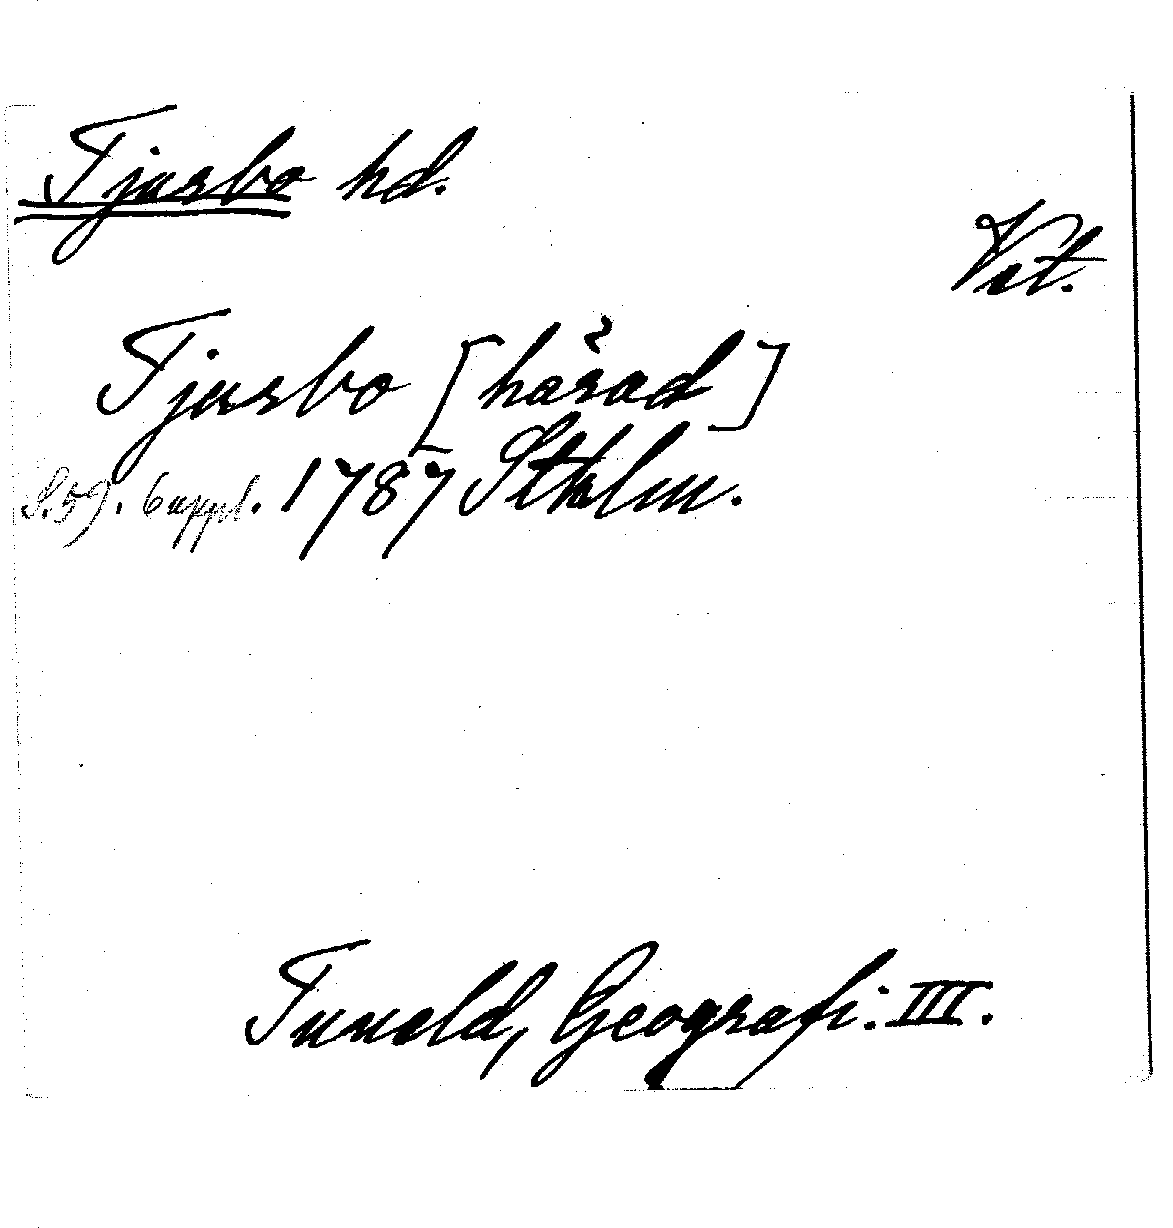 Tjusbo hd.
Vst.
Tjusbo [härad]
S. 59. 6 uppl. 1787 Sthlm.
Tuneld, Geografi: III.